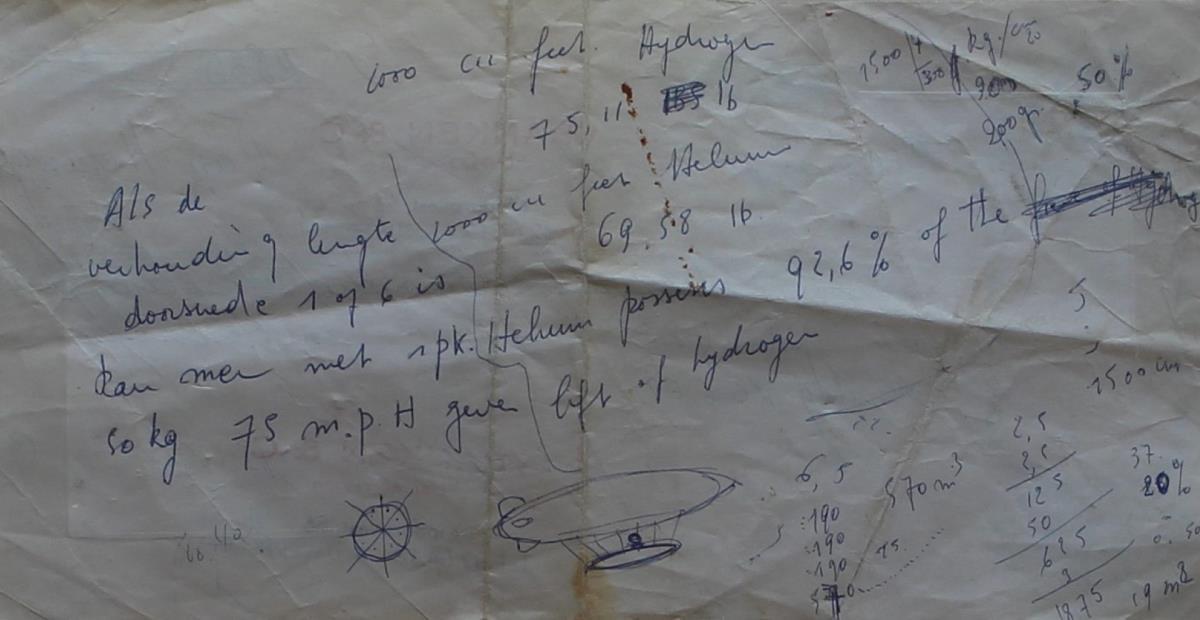 1000 cu feet. Hydrogen
75,11 lb
1000 cu feet Helium
69,58 lb.
Helium possess 92,6% of the
lift of hydrogen
Als de
verhouding lengte
doorsnede 1 op 6 is
kan men met 1 pk.
50 kg 75 m.p.H geven
1500
kg./
50%
200 gr.
5
1500 cm
6,5
190
190
190
570
570 m³
2,5
2,5
125
50
625
3
1875
37.
20%
19 m²